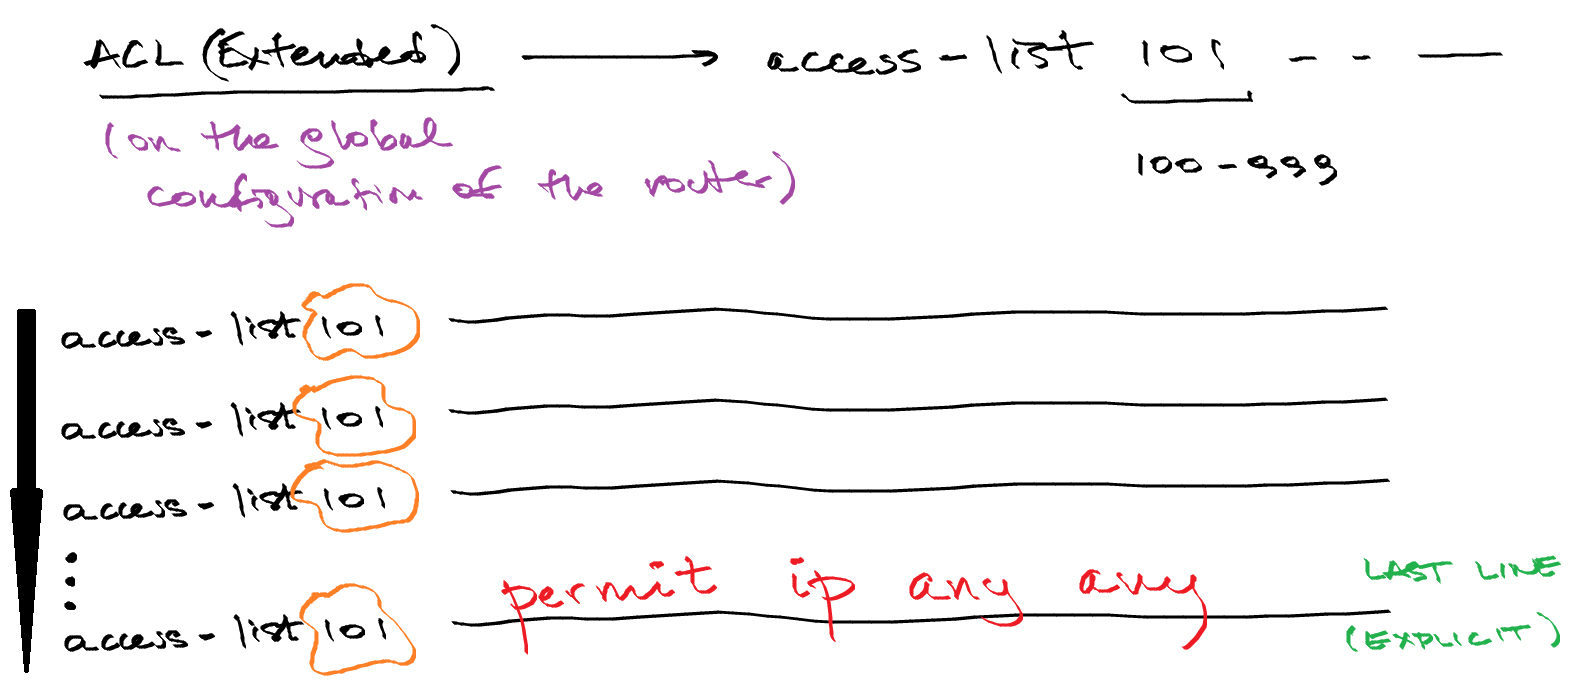 ACL (Extended) → access-list 101 - - —
(on the global
configuration of the router)
100-999
access-list 101
access-list 101
access-list 101
access-list 101 permit ip any any
LAST LINE
(EXPLICIT)